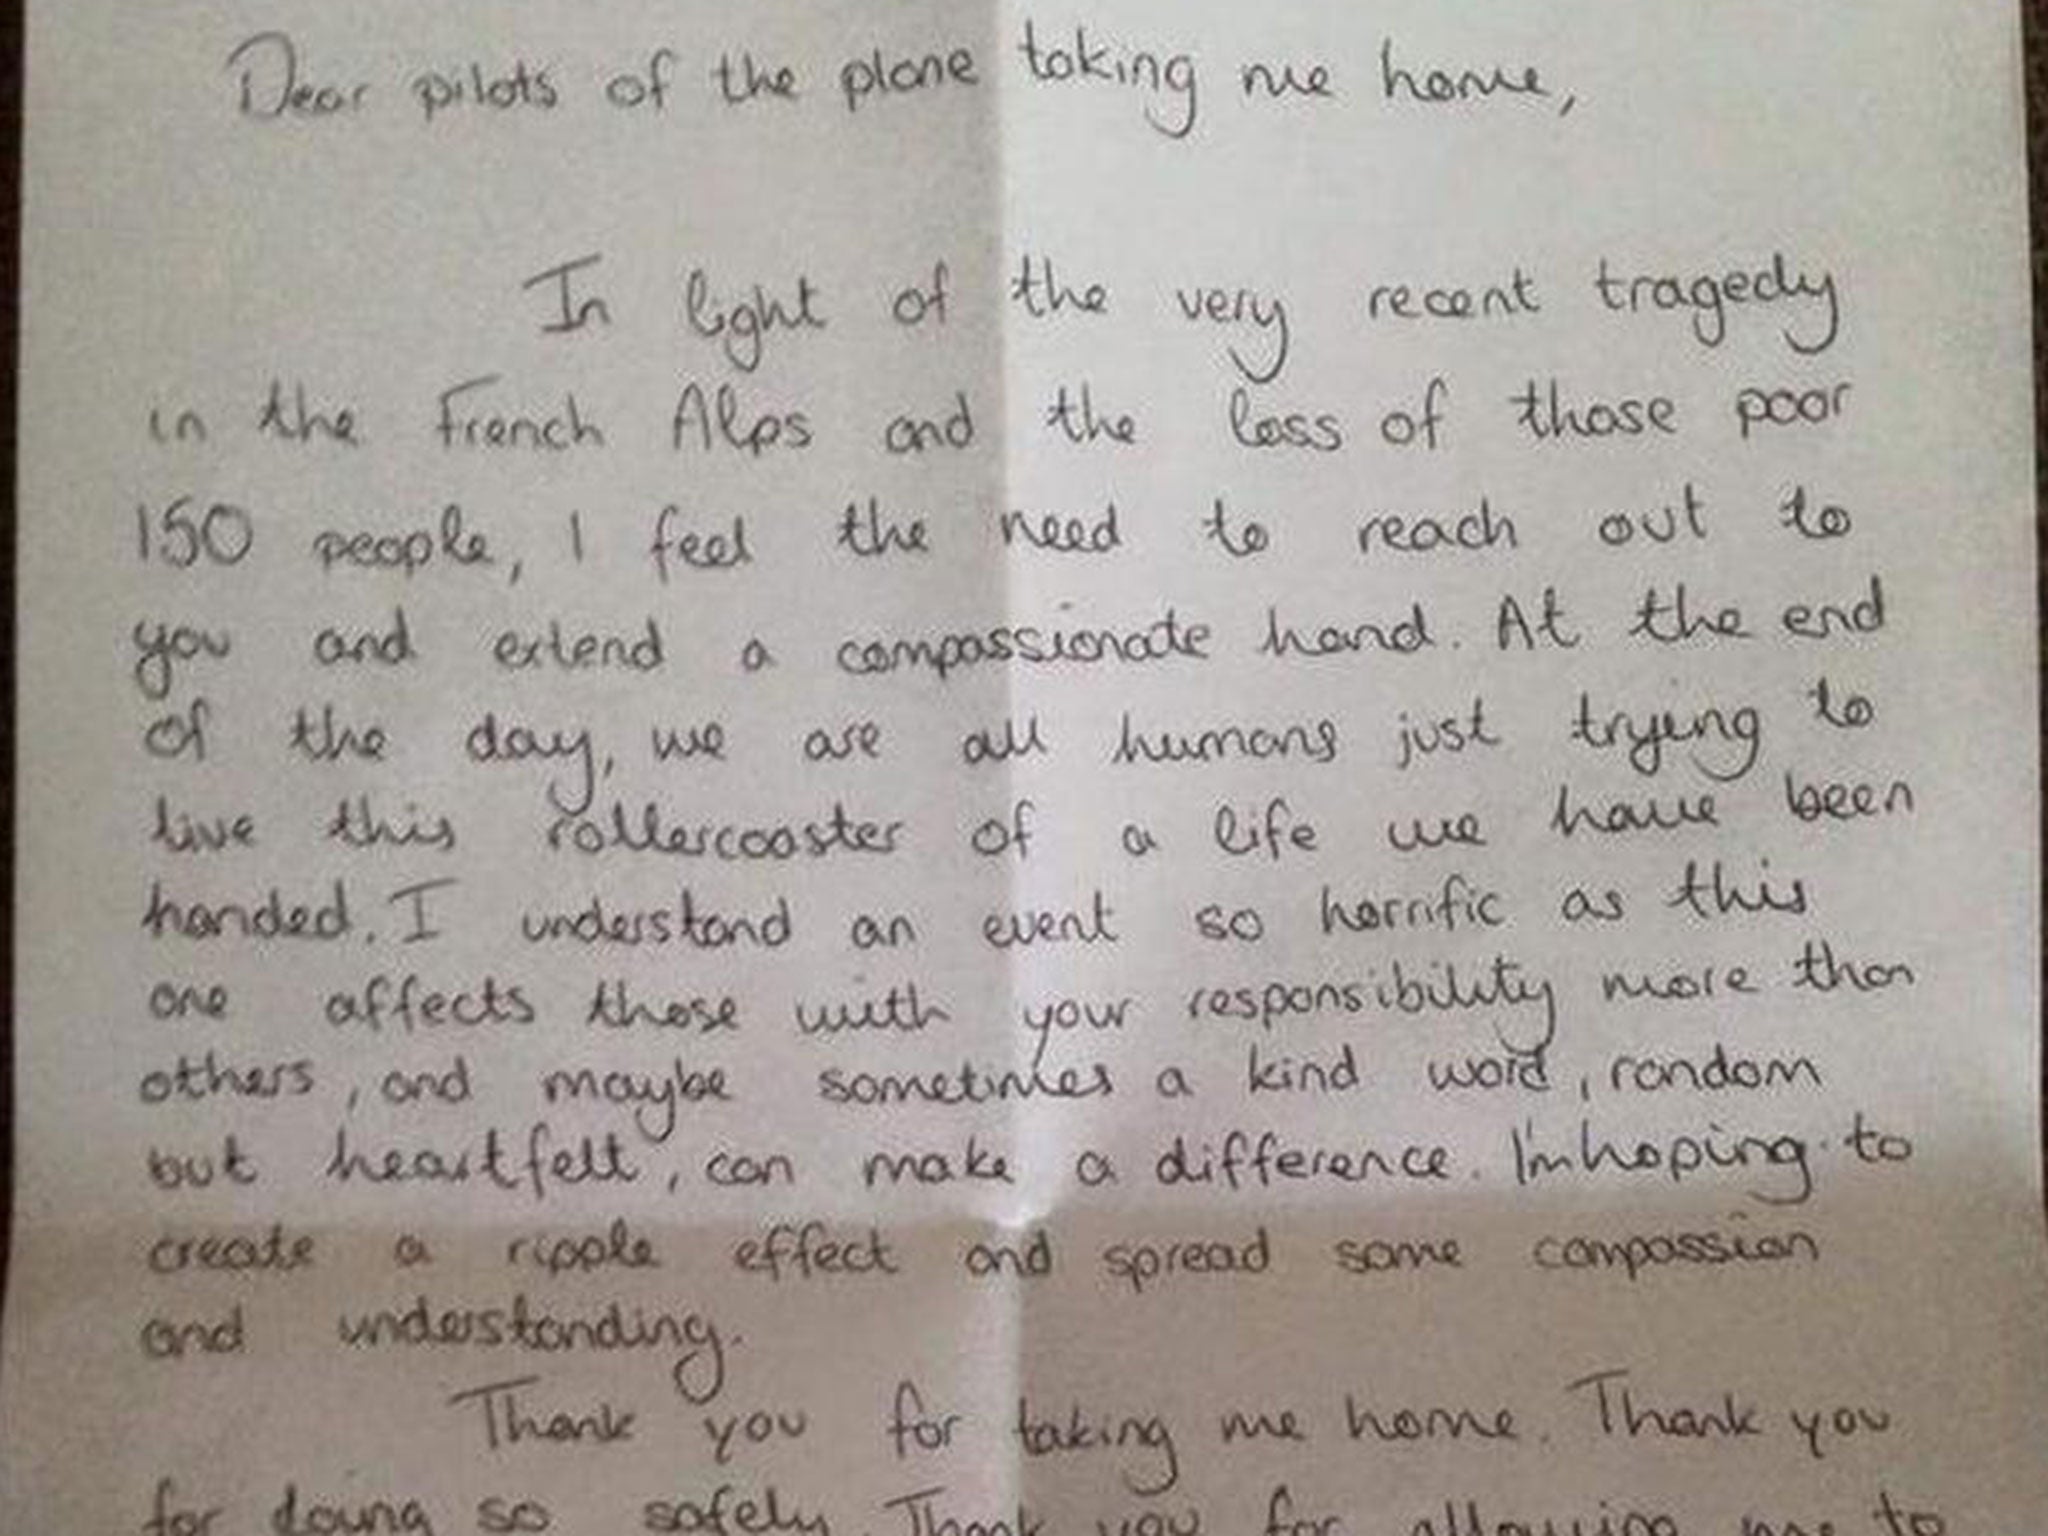 Dear pilots of the plane taking me home,
In light of the very recent tragedy
in the French Alps and the loss of those poor
150 people, I feel the need to reach out to
you and extend a compassionate hand. At the end
of the day, we are all humans just trying to
live this rollercoaster of a life we have been
handed. I understand an event so horrific as this
one affects those with your responsibility more than
others, and maybe sometimes a kind word, random
but heartfelt, can make a difference. I'm hoping to
create a ripple effect and spread some compassion
and understanding.
Thank you for taking me home. Thank you
for doing so safely. Thank you for allowing me to